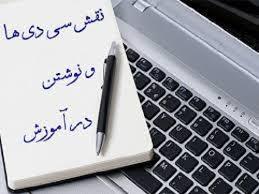 نقش سی دی ها
و نوشتن
در آموزش